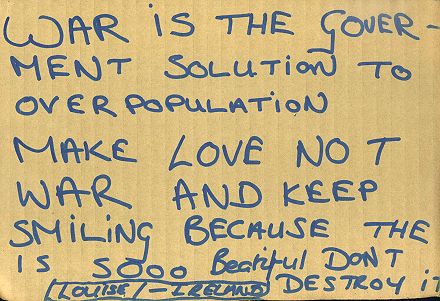 WAR IS THE GOUER-
MENT SOLUTION TO
OVERPOPULATION
MAKE LOVE NOT
WAR AND KEEP
SMILING BECAUSE THE
IS SOOO Beatiful DON'T
(LOUISE) - IRELAND DESTROY it